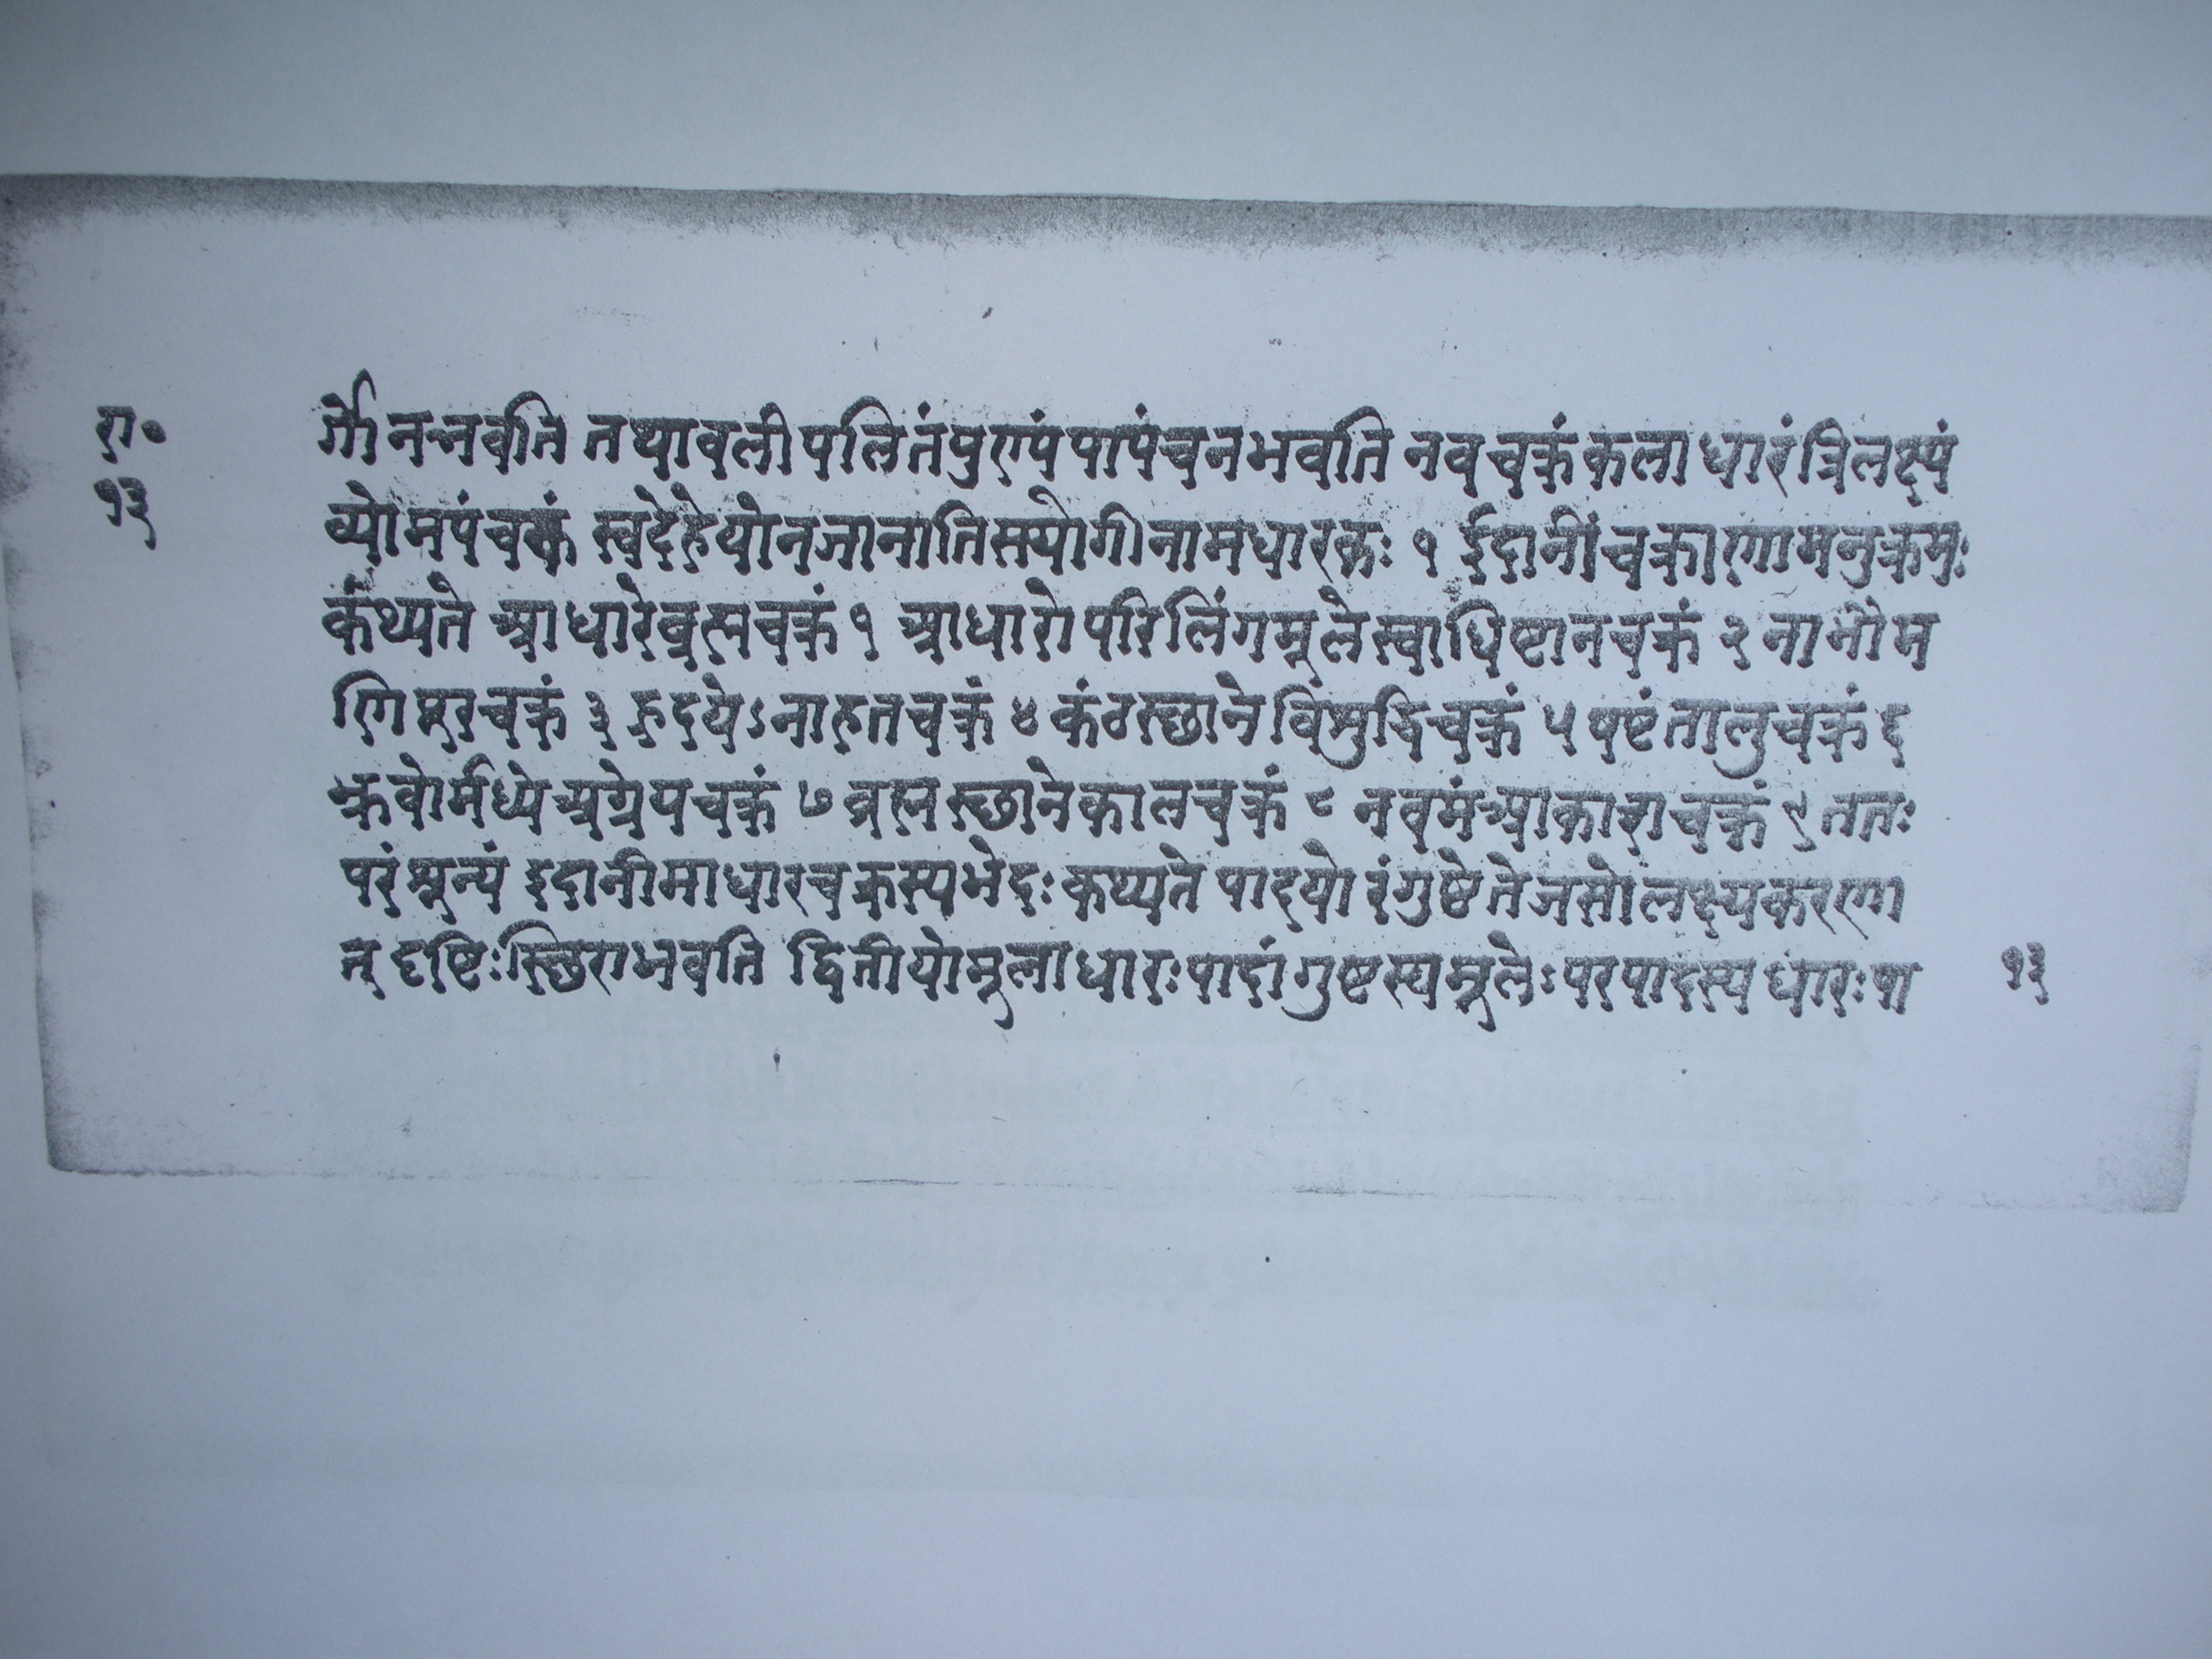 रा०
१३
र्गो नन्नवति तथावलीपलितंपुण्यंपापंचनभवति नवचक्रंकलाधारंत्रिलक्ष्यं
व्योमपंचकं स्वदेहेयोनजानातिसयोगीनामधारकः १ ईदानींचक्राणामनुक्रमः
कथ्यते आधारेब्रह्मचक्रं १ आधारोपरिलिंगमूलेस्वाधिष्टानचक्रं २ नाभौम
णिपूरचक्रं ३ हृदयेऽनाहतचक्रं ४ कंठस्छानेविंशुद्धिचक्रं ५ षष्टंतालुचक्रं ६
भ्रुवोर्मध्येअग्नेयचक्रं ७ ब्रह्मस्छानेकालचक्रं ८ नवमंआकाशचक्रं ९ ततः
परंश्रून्यं इदानीमाधारचक्रस्यभेदः कथ्यते पादयोरंगुष्टेतेजसोलक्ष्यकरणा
त् दृष्टिःस्छिराभवति द्वितीयोमूलाधारःपादांगुष्टस्यमूलेःपरपादस्यधारःपा
१३